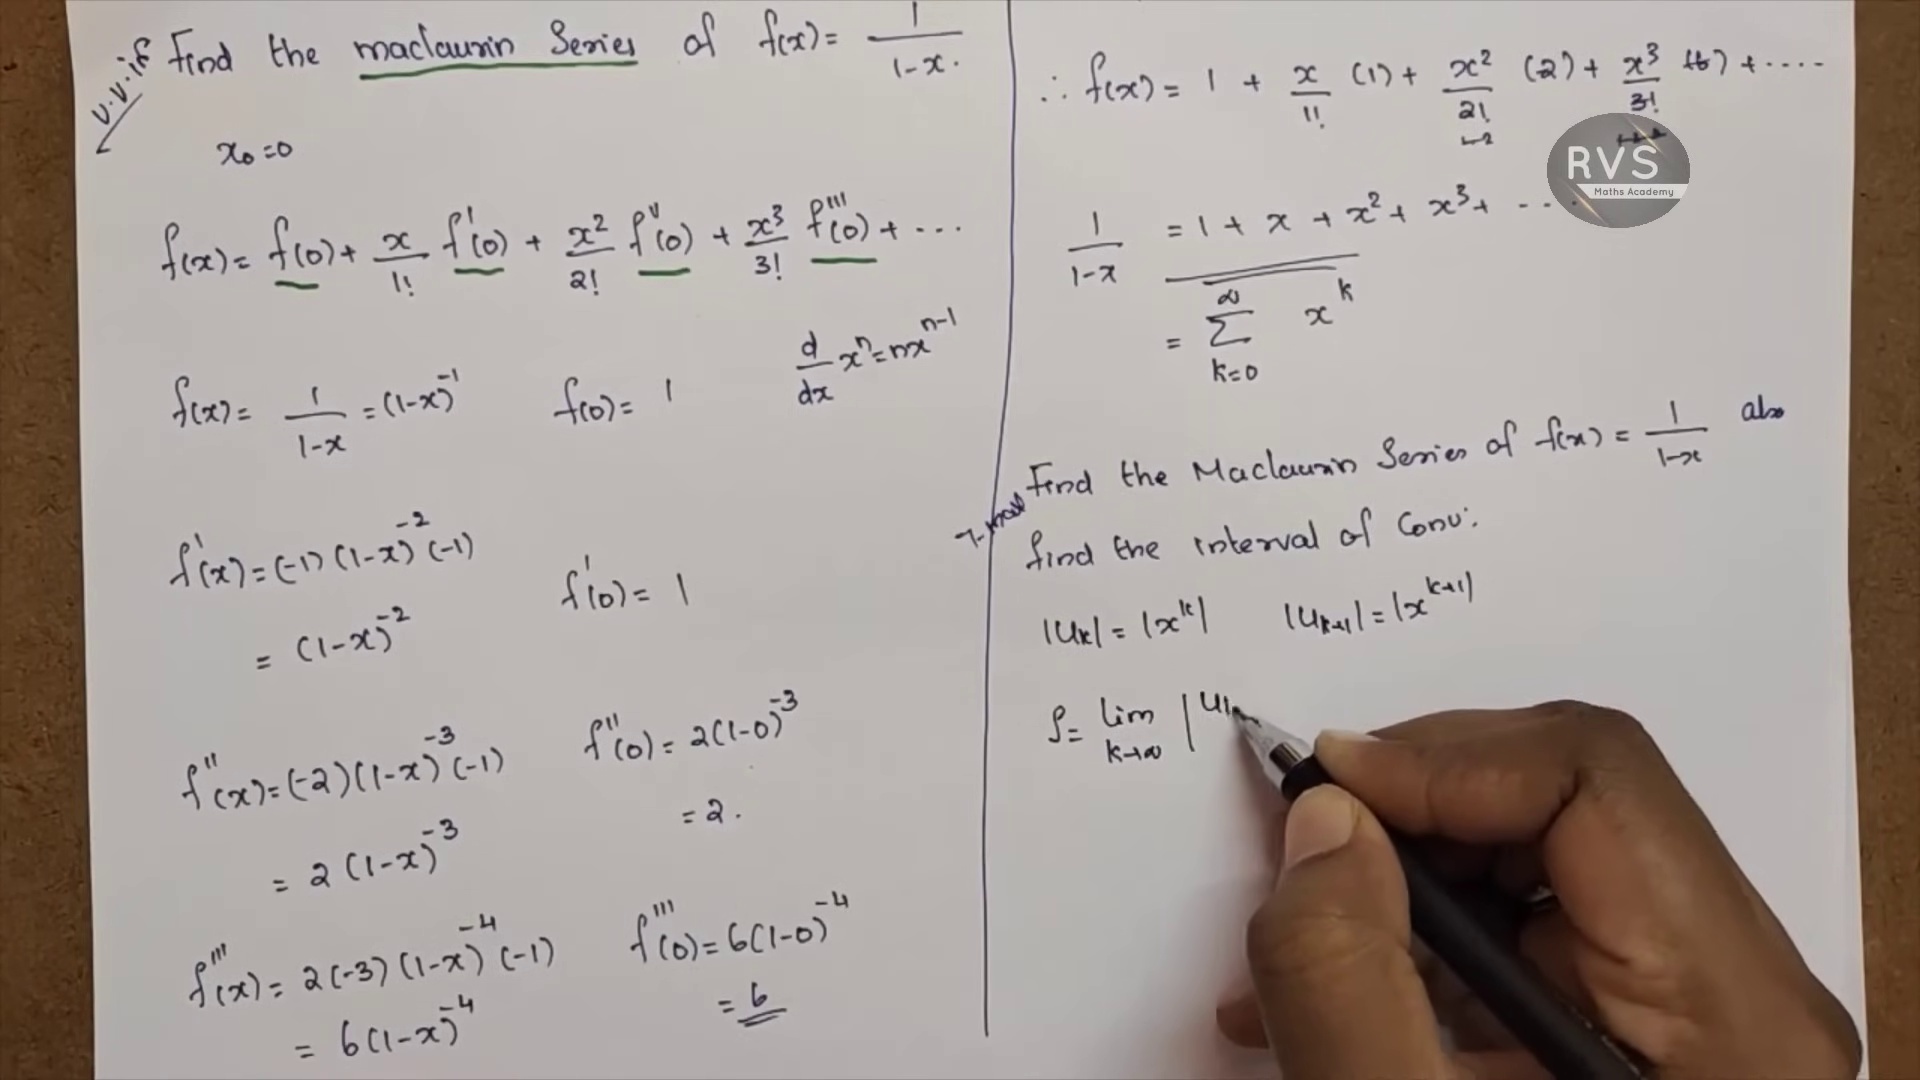 v.v.if Find the maclaurin Series of f(x) = 1/(1-x).
x₀=0
f(x) = f(0) + x/1! f'(0) + x²/2! f''(0) + x³/3! f'''(0) + ...
d/dx xⁿ = nxⁿ⁻¹
f(x) = 1/(1-x) = (1-x)⁻¹ f(0) = 1
f'(x) = (-1)(1-x)⁻²(-1) f'(0) = 1
= (1-x)⁻²
f''(x) = (-2)(1-x)⁻³(-1) f''(0) = 2(1-0)⁻³
= 2(1-x)⁻³ = 2.
f'''(x) = 2(-3)(1-x)⁻⁴(-1) f'''(0) = 6(1-0)⁻⁴
= 6(1-x)⁻⁴ = 6
∴ f(x) = 1 + x/1! (1) + x²/2! (2) + x³/3! (6) + ....
RVS
Maths Academy
1/(1-x) = 1 + x + x² + x³ + ...
= ∑ₖ₌₀^∞ xᵏ
Find the Maclaurin Series of f(x) = 1/(1-x) also
find the interval of Conv:
|uₖ| = |xᵏ| |uₖ₊₁| = |xᵏ⁺¹|
ρ = lim k→∞ |u